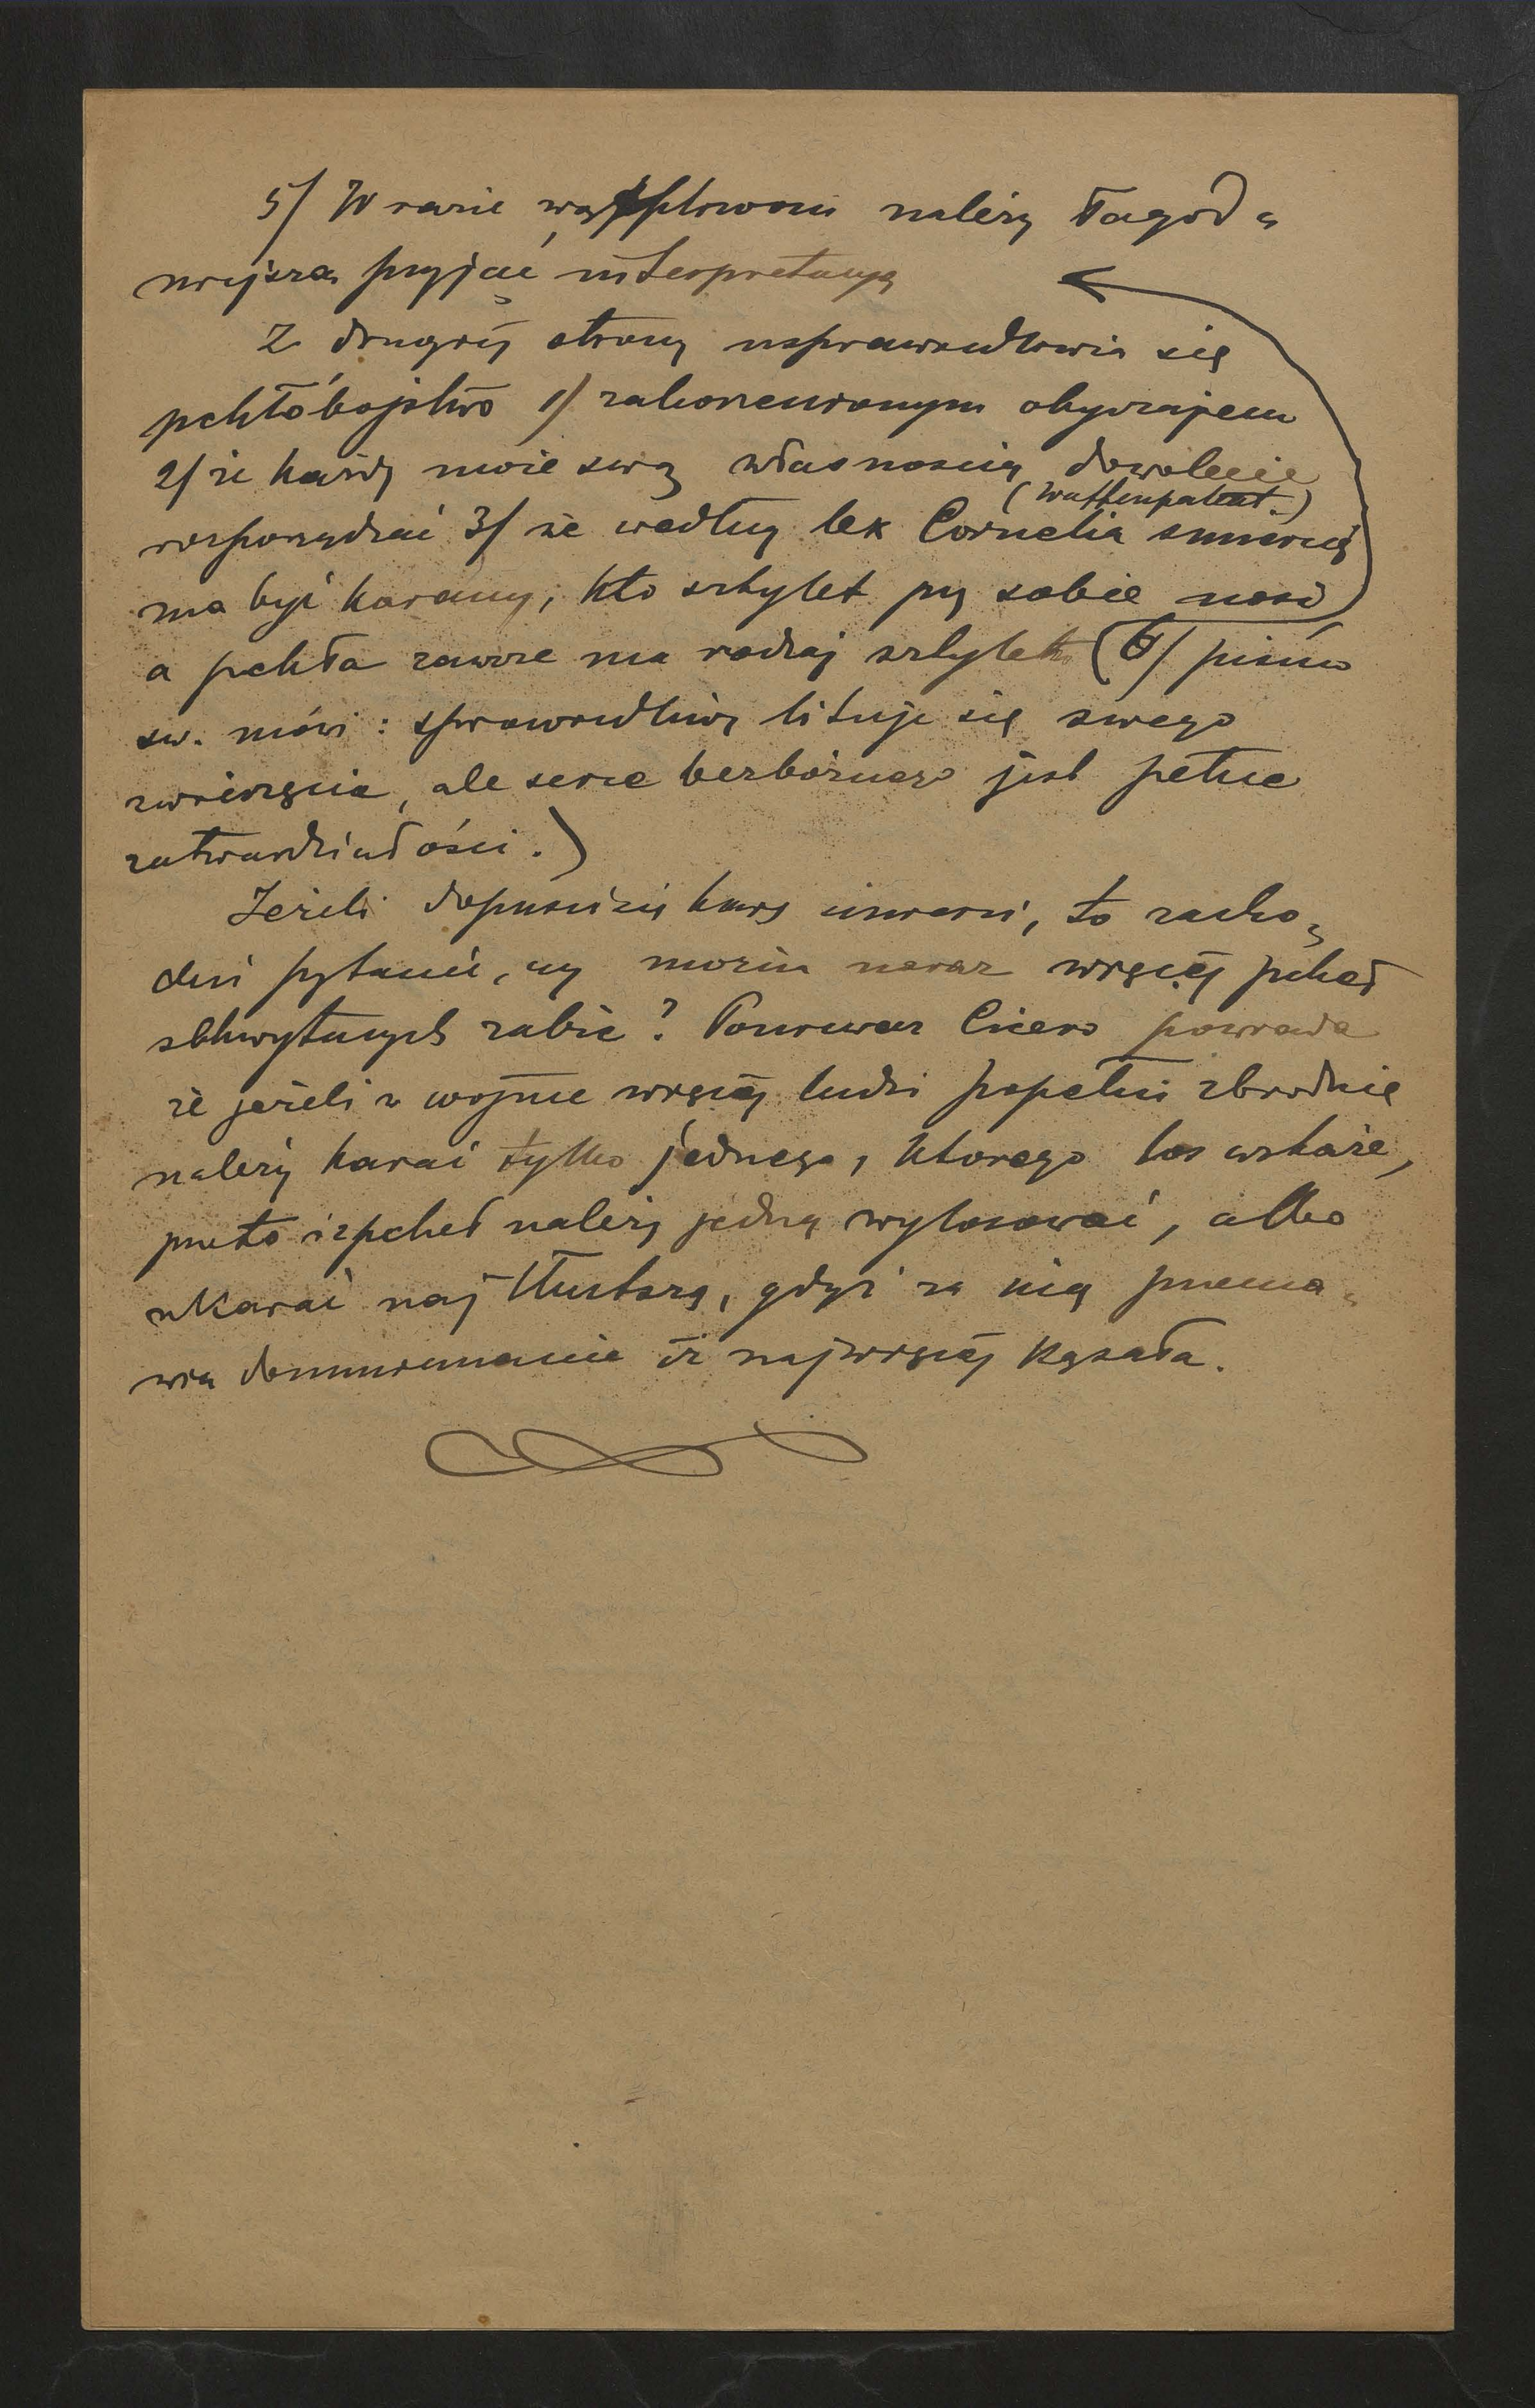 5/ W razie wątpliwości należy łagod=
niejszą przyjąć interpretacyę
Z drugiéj strony usprawiedliwia się
pchłobójstwo 1/ zakorzenionym obyczajem
2/ że każdy może swą własnością dowolnie
(Waffenpatent.)
rozporządzać 3/ że według lex Cornelia śmiercią
ma być karany, kto sztylet przy sobie nosi
a pchła zawsze ma rodzaj sztyletu (6/ pismo
św. mówi: sprawiedliwy lituje się swego
zwierzęcia, ale serce bezbożnego jest pełne
zatwardziałości.)
Jeżeli dopuścimy karę śmierci, to zacho=
dzi pytanie, czy można naraz więcéj pcheł
schwytanych zabić? Ponieważ Cicero powiada
że jeżeli w wojnie więcéj ludzi popełni zbrodnię
należy karać tylko jednego, którego los wskaże,
przeto z pcheł należy jedną wylosować, albo
ukarać najtłustszą, gdyż za nią przema=
wia domniemanie iż najwięcéj kąsała.